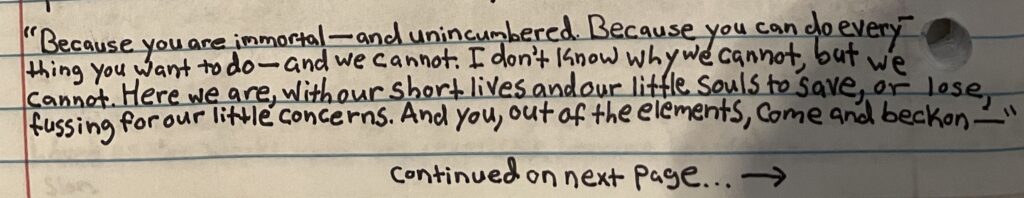 "Because you are immortal—and unincumbered. Because you can do every-
thing you want to do—and we cannot. I don't know why we cannot, but we
cannot. Here we are, with our short lives and our little souls to save, or lose,
fussing for our little concerns. And you, out of the elements, come and beckon—"
continued on next page... →